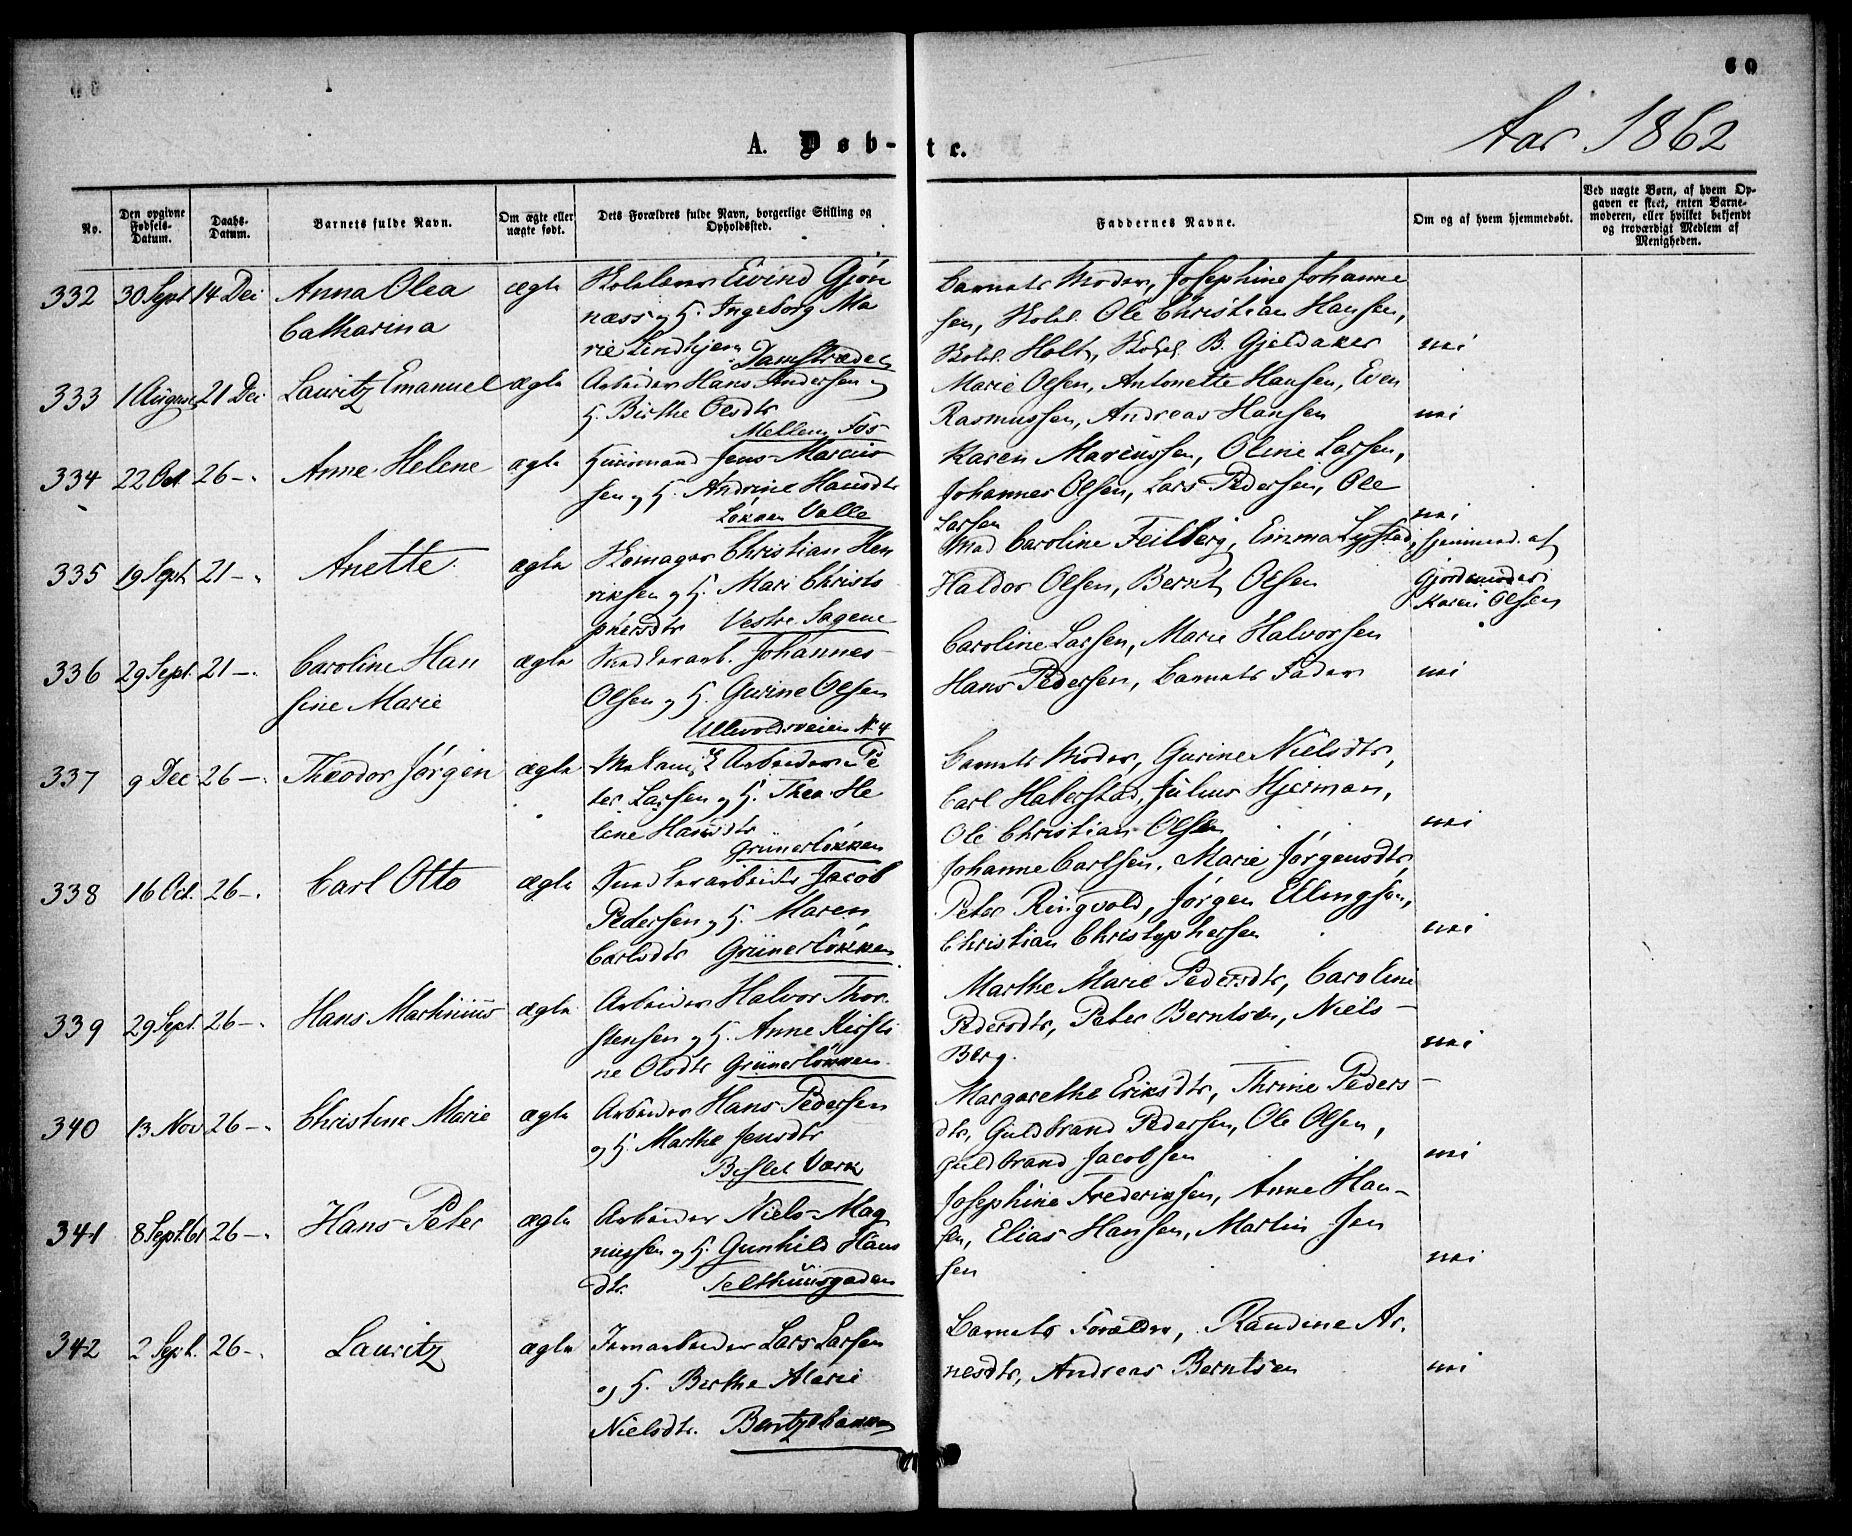 60
Aar 1862
A. Døb-te.
No.
Den opgivne Fødsels-Datum.
Daabs-Datum.
Barnets fulde Navn.
Om ægte eller uægte født.
Dets Forældres fulde Navn, borgerlige Stilling og Opholdssted.
Faddernes Navne.
Om og af hvem hjemmedøbt.
Ved uægte Børn, af hvem Op-
gaven er skeet, enten Barne-
moderen, eller hvilket bekjendt
og troværdigt Medlem af
Menigheden.
332 30 Sept 14 Dec Anna Olea ægte Skolelærer Eivind Gjøn Barnets Moder, Josephine Johanne
Catharina næss og H. Ingeborg Ma sen, Skolel. Ole Christian Hansen,
rie Lindhjem Damstrædet Skolel. Holt, Skolel. B. Gjeldaker nei
333 1 August 21 Dec Lauritz Emanuel ægte Arbeider Hans Andersen og Marie Olsen, Antonette Hansen, Even
H. Birthe Olsdtr Rasmussen, Andreas Hansen nei
Mellem Fos
334 22 Oct 26 -. Anne Helene ægte Huusmand Jens Marius Karen Mariussen, Oline Larsen,
sen og H. Andrine Hansdtr Johannes Olsen, Lars Pedersen, Ole
Løkken Valle Larsen nei
335 19 Sept. 21 -. Anette ægte Skomager Christian Hen Mad Caroline Feilberg, Emma Lystad, hjemmed. af
riksen og H. Mari Christo Haldor Olsen, Bernt Olsen Gjordemoder
phersdtr Vestre Sagene Karen Olsen
336 29 Sept. 21 -. Caroline Han ægte Johannes Caroline Larsen, Marie Halvorsen
sine Marie Olsen og H. Gurine Olsen Hans Pedersen, Barnets Fader nei
Ullevoldsveien N. 4
337 9 Dec 26 -. Theodor Jørgen ægte Mekanisk Arbeider Pe Barnets Moder, Gurine Nielsdtr,
ter Larsen og H. Thea He Carl Haberstad, Julius Hjerman,
line Hansdtr Ole Christian Olsen nei
Grünerløkken
338 16 Oct. 26 -. Carl Otto ægte Jacob Johanne Carlsen, Marie Jørgensdtr,
Pedersen og H. Maren Peter Ringvold, Jørgen Ellingsen,
Carlsdtr Grünerløkken Christian Christophersen nei
339 29 Sept. 26 -. Hans Martinius ægte Arbeider Halvor Thor Marthe Marie Pedersdtr, Caroline
stensen og H. Anne Kirsti Pedersdtr, Peter Berntsen, Niels
ne Olsdtr Grünerløkken Berg. nei
340 13 Nov 26 -. Christine Marie ægte Arbeider Hans Pedersen Margarethe Eriksdtr, Thrine Peders-
og H. Marthe Jensdtr dtr, Guldbrand Pedersen, Ole Olsen,
Bislet Værk Guldbrand Jacobsen nei
341 8 Sept. 61 26 -. Hans Peter ægte Arbeider Niels Mag Josephine Frederiksen, Anne Han-
nussen og H. Gunhild Hans sen, Elias Hansen, Martin Jen
dtr. Telthuusgaden sen nei
342 2 Sept. 26 -. Lauritz ægte Jernarbeider Lars Larsen Barnets Forældre, Randine Ar.
og H. Birthe Marie nesdtr, Andreas Berntsen nei
Nielsdtr. Bentzebakken